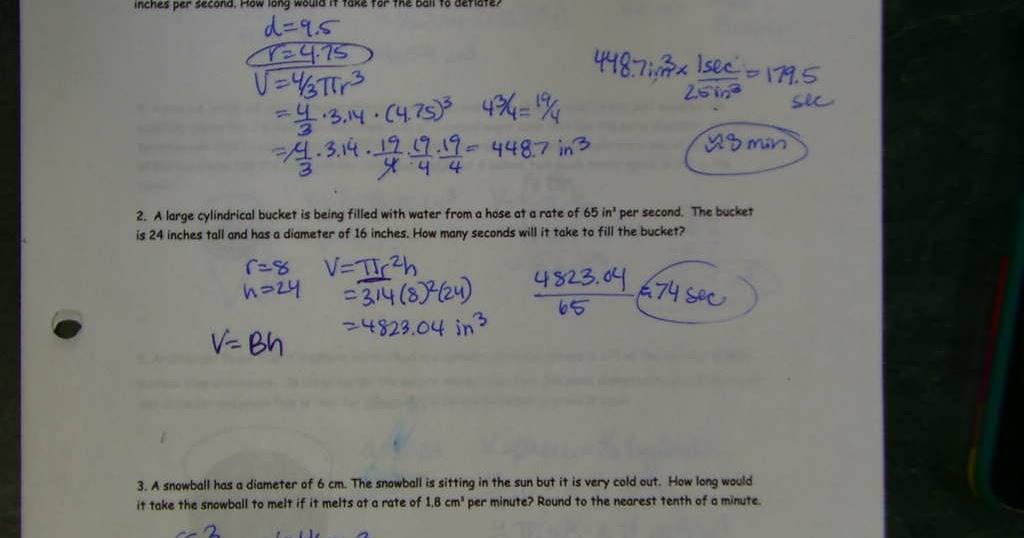 inches per second. How long would it take for the ball to deflate?
d=9.5
r=4.75
V=4/3πr³
=4/3·3.14·(4.75)³ 4 3/4=19/4
=4/3·3.14·19/4·19/4·19/4= 448.7 in³
448.7in³x 1sec/2.5in³=179.5 sec
≈3 min
2. A large cylindrical bucket is being filled with water from a hose at a rate of 65 in³ per second. The bucket
is 24 inches tall and has a diameter of 16 inches. How many seconds will it take to fill the bucket?
r=8 V=πr²h
h=24 =3.14(8)²(24)
=4823.04 in³
V=Bh
4823.04/65 =74 sec
3. A snowball has a diameter of 6 cm. The snowball is sitting in the sun but it is very cold out. How long would
it take the snowball to melt if it melts at a rate of 1.8 cm³ per minute? Round to the nearest tenth of a minute.